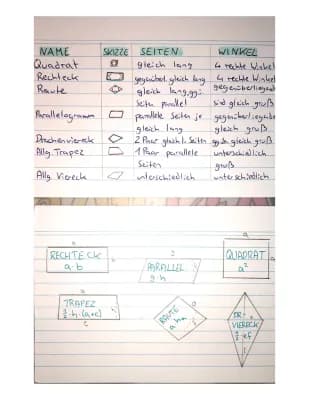 NAME SKIZZE SEITEN WINKEL
Quadrat gleich lang 4 rechte Winkel
Rechteck gegenüberl. gleich lang 4 rechte Winkel
Raute gleich lang, ggü. gegenüberliegend
Seiten parallel sind gleich groß
Parallelogramm parallele Seiten je gegenüberliegende
gleich lang gleich groß
Drachenviereck 2 Paar gleich l. Seiten gleich groß
Allg. Trapez 1 Paar parallele unterschiedlich
Seiten groß
Allg. Viereck unterschiedlich unterschiedlich
a
RECHTECK
a·b
PARALLEL.
g·h
QUADRAT
a²
a
TRAPEZ
½·h·(a+c)
c
RAUTE
a·ha
DR-
VIERECK
½·ef